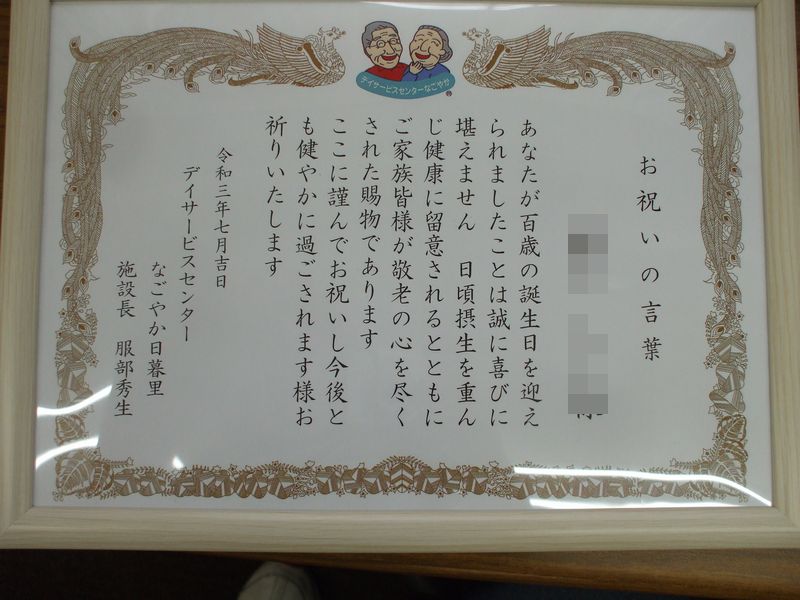 デイサービスセンターなごやか
お祝いの言葉
あなたが百歳の誕生日を迎え
られましたことは誠に喜びに
堪えません 日頃摂生を重ん
じ健康に留意されるとともに
ご家族皆様が敬老の心を尽く
された賜物であります
ここに謹んでお祝いし今後と
も健やかに過ごされます様お
祈りいたします
令和三年七月吉日
デイサービスセンター
なごやか日暮里
施設長 服部秀生